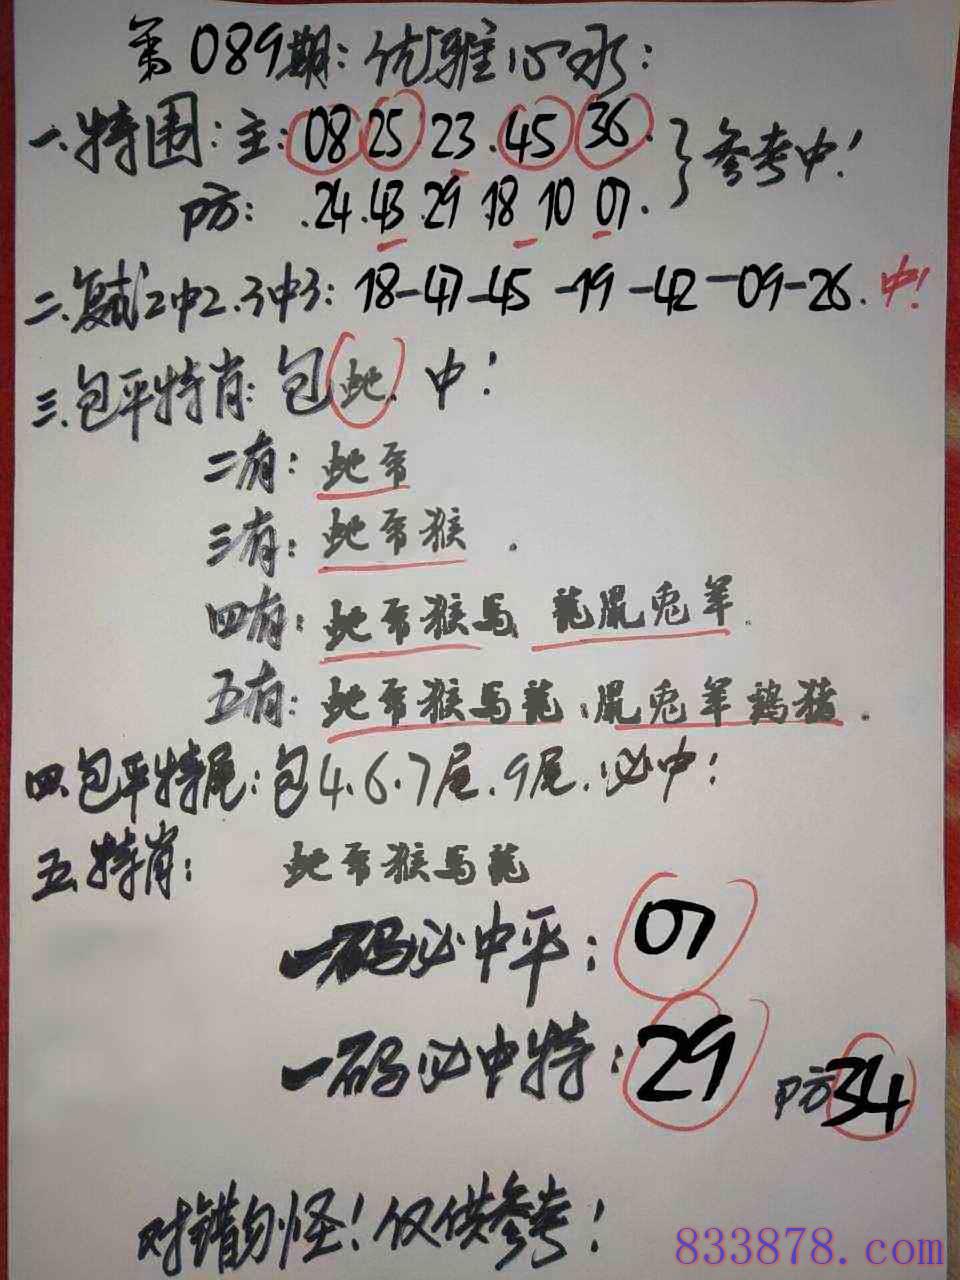 第089期:优雅心水:
一.特围:主:08 25 23.45 36.}参考中!
防:.24.43.29.18 10 07.
二.复试2中2.3中3:18-47-45-19-42-09-26.中!
三.包平特肖:包蛇.中!
二有:蛇帝
三有:蛇帝猴.
四有:蛇帝猴马 龍鼠兎羊.
五有:蛇帝猴马龍.鼠兎羊鷄猪.
四.包平特尾:包4.6.7尾.9尾.必中!
五.特肖:蛇帝猴马龍
一码必中平:07
一码必中特:29 防34
对错勿怪!仅供参考!
833878.com